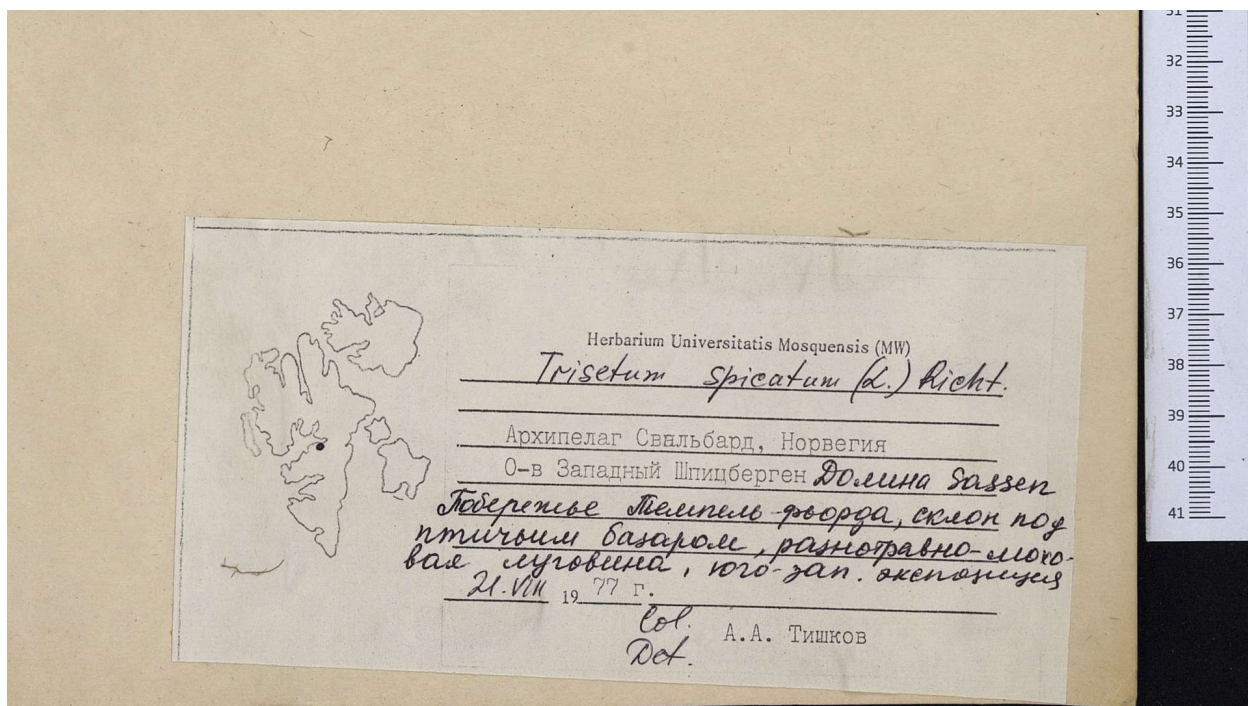 Herbarium Universitatis Mosquensis (MW)
Trisetum spicatum (L.) Richt.
Архипелаг Свальбард, Норвегия
О-в Западный Шпицберген Долина Sassen
Побережье Темпель-фьорда, склон под
птичьим базаром, разнотравно-мохо-
вая луговина, юго-зап. экспозиция
21.VIII 1977 г.
Col.
Det. А.А. Тишков
31
32
33
34
35
36
37
38
39
40
41